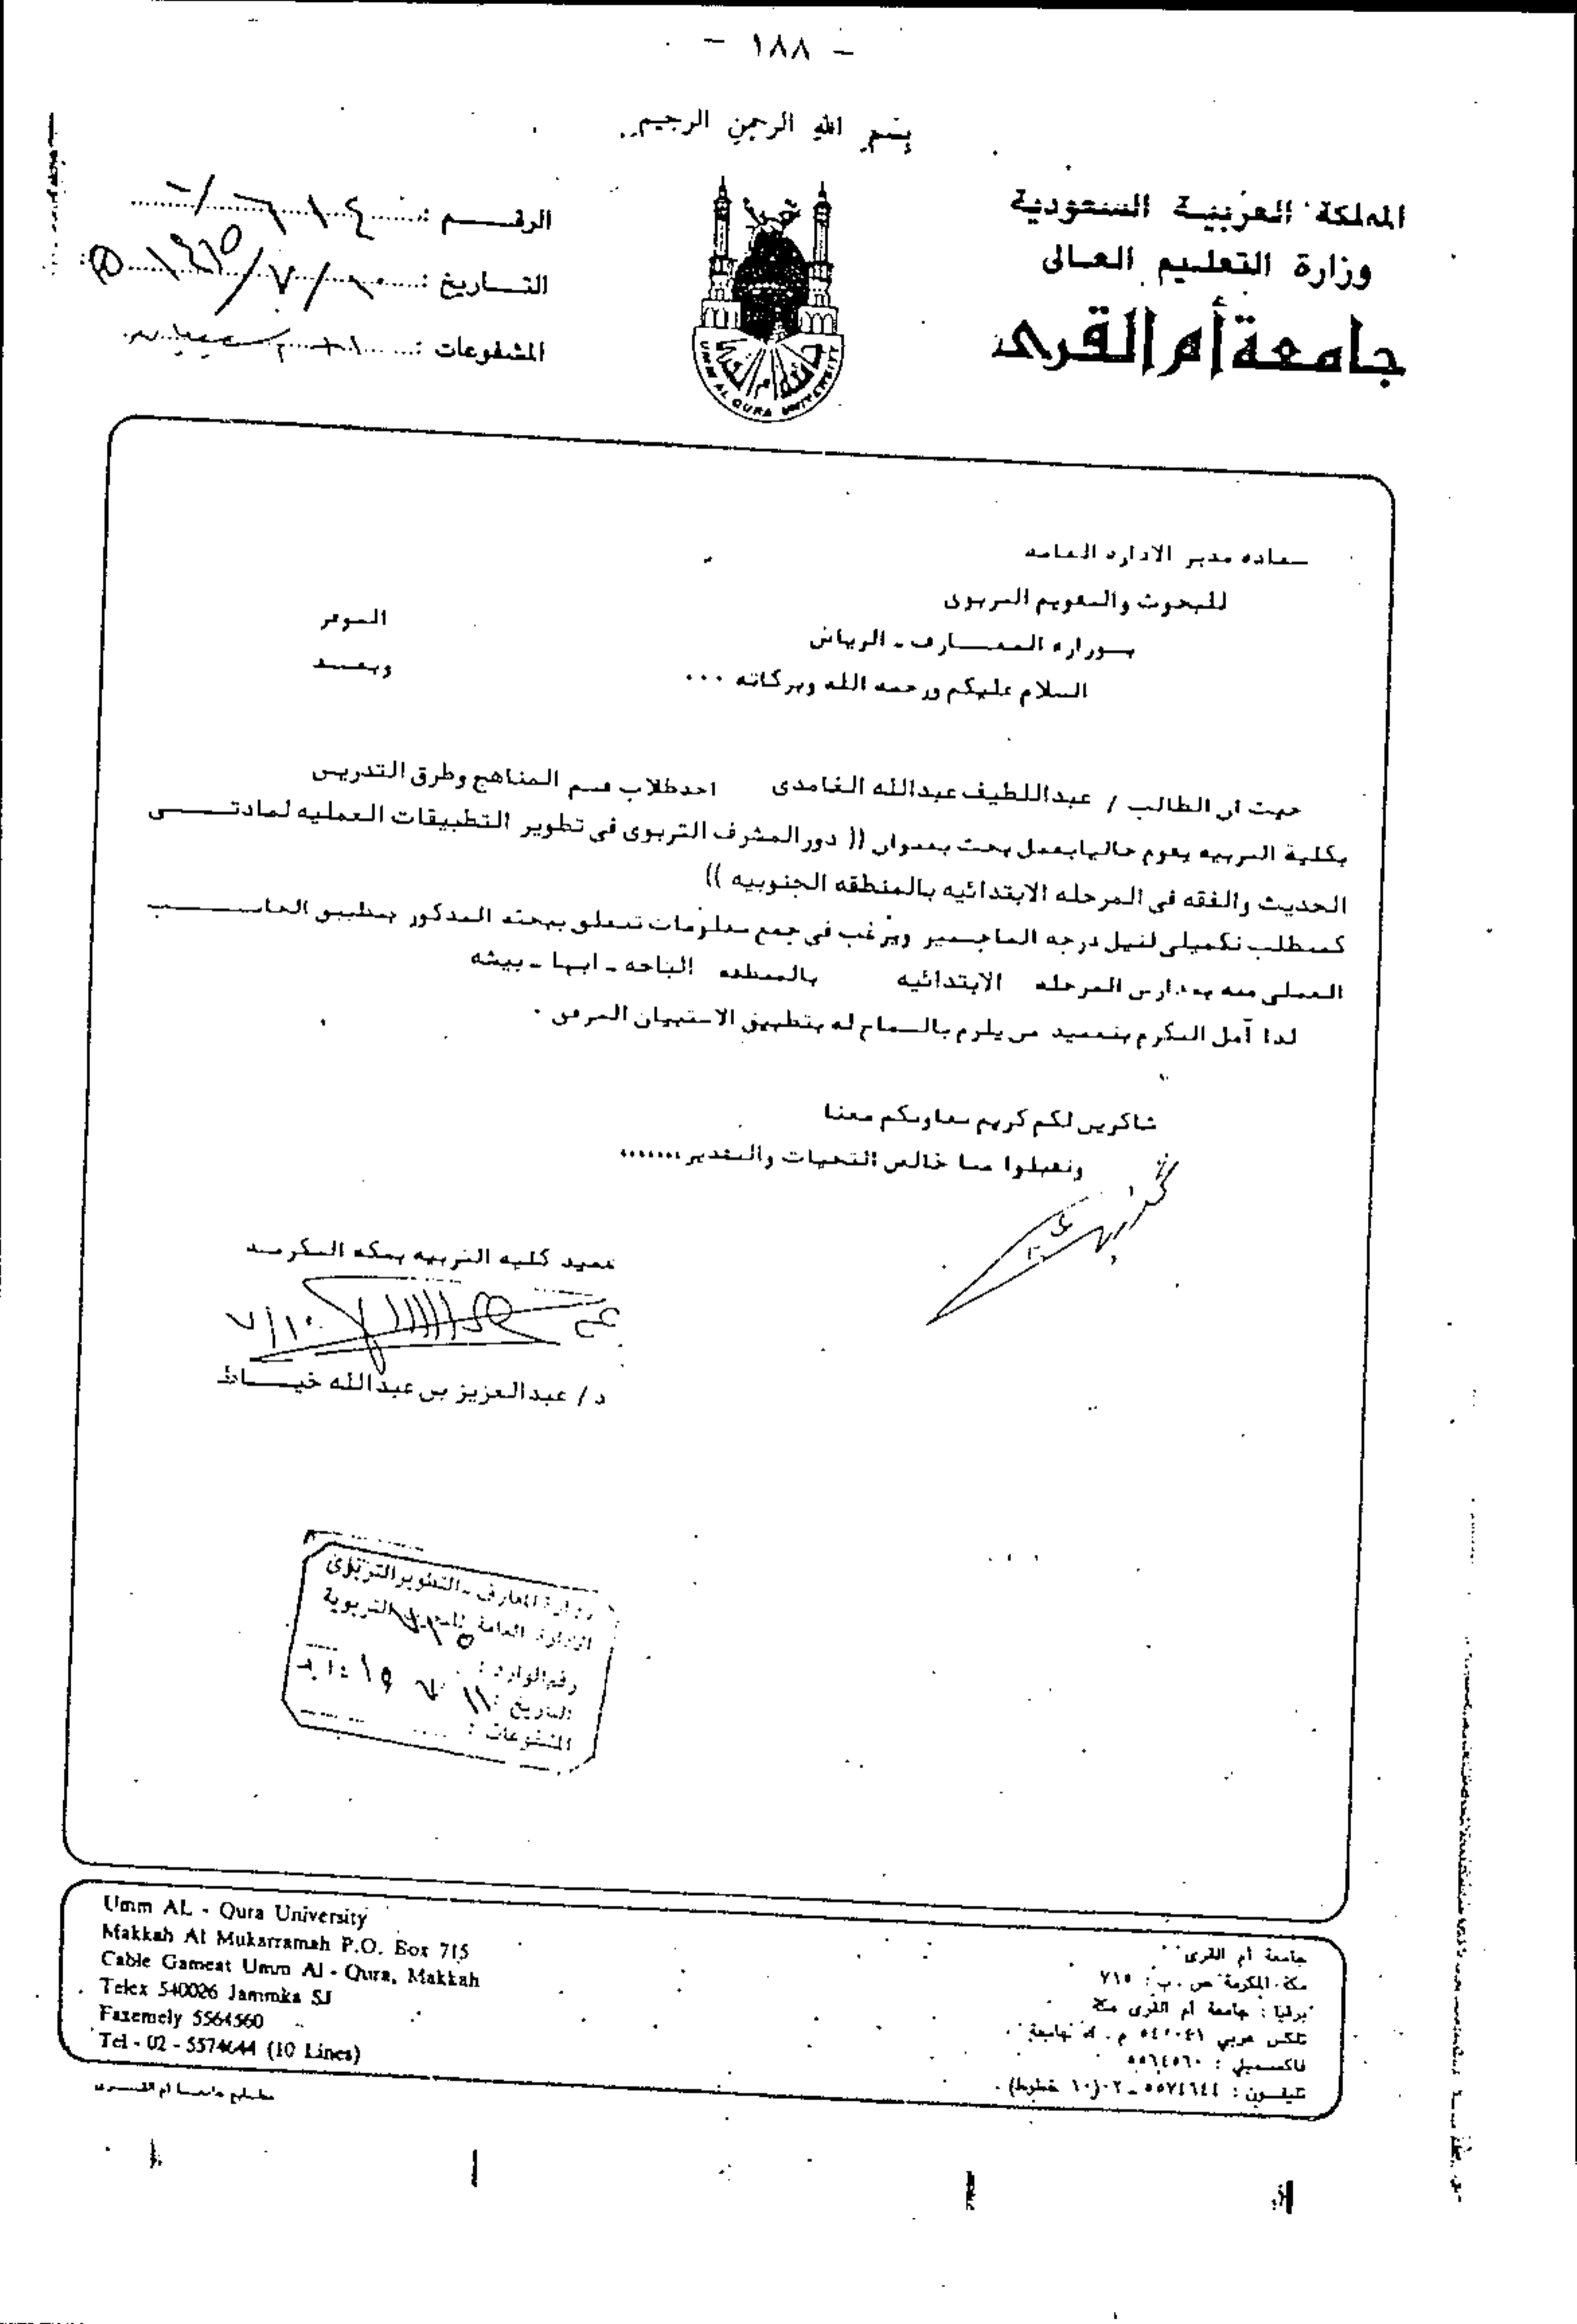 - ١٨٨ -
بسم الله الرحمن الرحيم
المملكة العربية السعودية
وزارة التعليم العالى
جامعة أم القرى
الرقـــم :
التــاريخ : ١٠/٧/
المشفوعات :
UMM AL QURA UNIVERSITY
سعاده مدير الاداره العامه
للبحوث والتقويم التربوى
بــوزاره المعـــارف - الرياض
الموقر
السلام عليكم ورحمه الله وبركاته ...
وبعـــد
حيث ان الطالب / عبداللطيف عبدالله الغامدى احدطلاب قسم المناهج وطرق التدريس
بكلية التربيه يقوم حاليابعمل بحث بعنوان (( دورالمشرف التربوى فى تطوير التطبيقات العمليه لمادتــــى
الحديث والفقه فى المرحله الابتدائيه بالمنطقه الجنوبيه ))
كمتطلب تكميلى لنيل درجه الماجستير ويرغب فى جمع معلومات تتعلق ببحثه المذكور بتطبيق الجانــــب
العملى منه بمدارس المرحله الابتدائيه بالمنطقه الباحه - ابها - بيشه
لذا آمل التكرم بتعميد من يلزم بالسماح له بتطبيق الاستبيان المرفق .
شاكرين لكم كريم تعاونكم معنا
وتقبلوا منا خالص التحيات والتقدير.......
عميد كليه التربيه بمكه المكرمــه
١٠/٧
د/ عبدالعزيز بن عبدالله خيـــاط
وزارة المعارف - التطوير التربوى
الإدارة العامة للبحوث التربوية
رقم الوارد :
التاريخ : ١١
المشفوعات :
Umm AL - Qura University
Makkah Al Mukarramah P.O. Box 715
Cable Gameat Umm Al - Qura, Makkah
Telex 540026 Jammka SJ
Faxemely 5564560
Tel - 02 - 5574644 (10 Lines)
جامعة أم القرى
مكة المكرمة ص . ب : ٧١٥
برقيا : جامعة أم القرى مكة
تلكس عربي ٥٤٠٠٤١ م . ك جامعة
فاكسميلي : ٥٥٦٤٥٦٠
تليفــون : ٥٥٧٤٦٤٤ - ٠٢ (١٠ خطوط)
مطــابع جامعــة أم القــرى